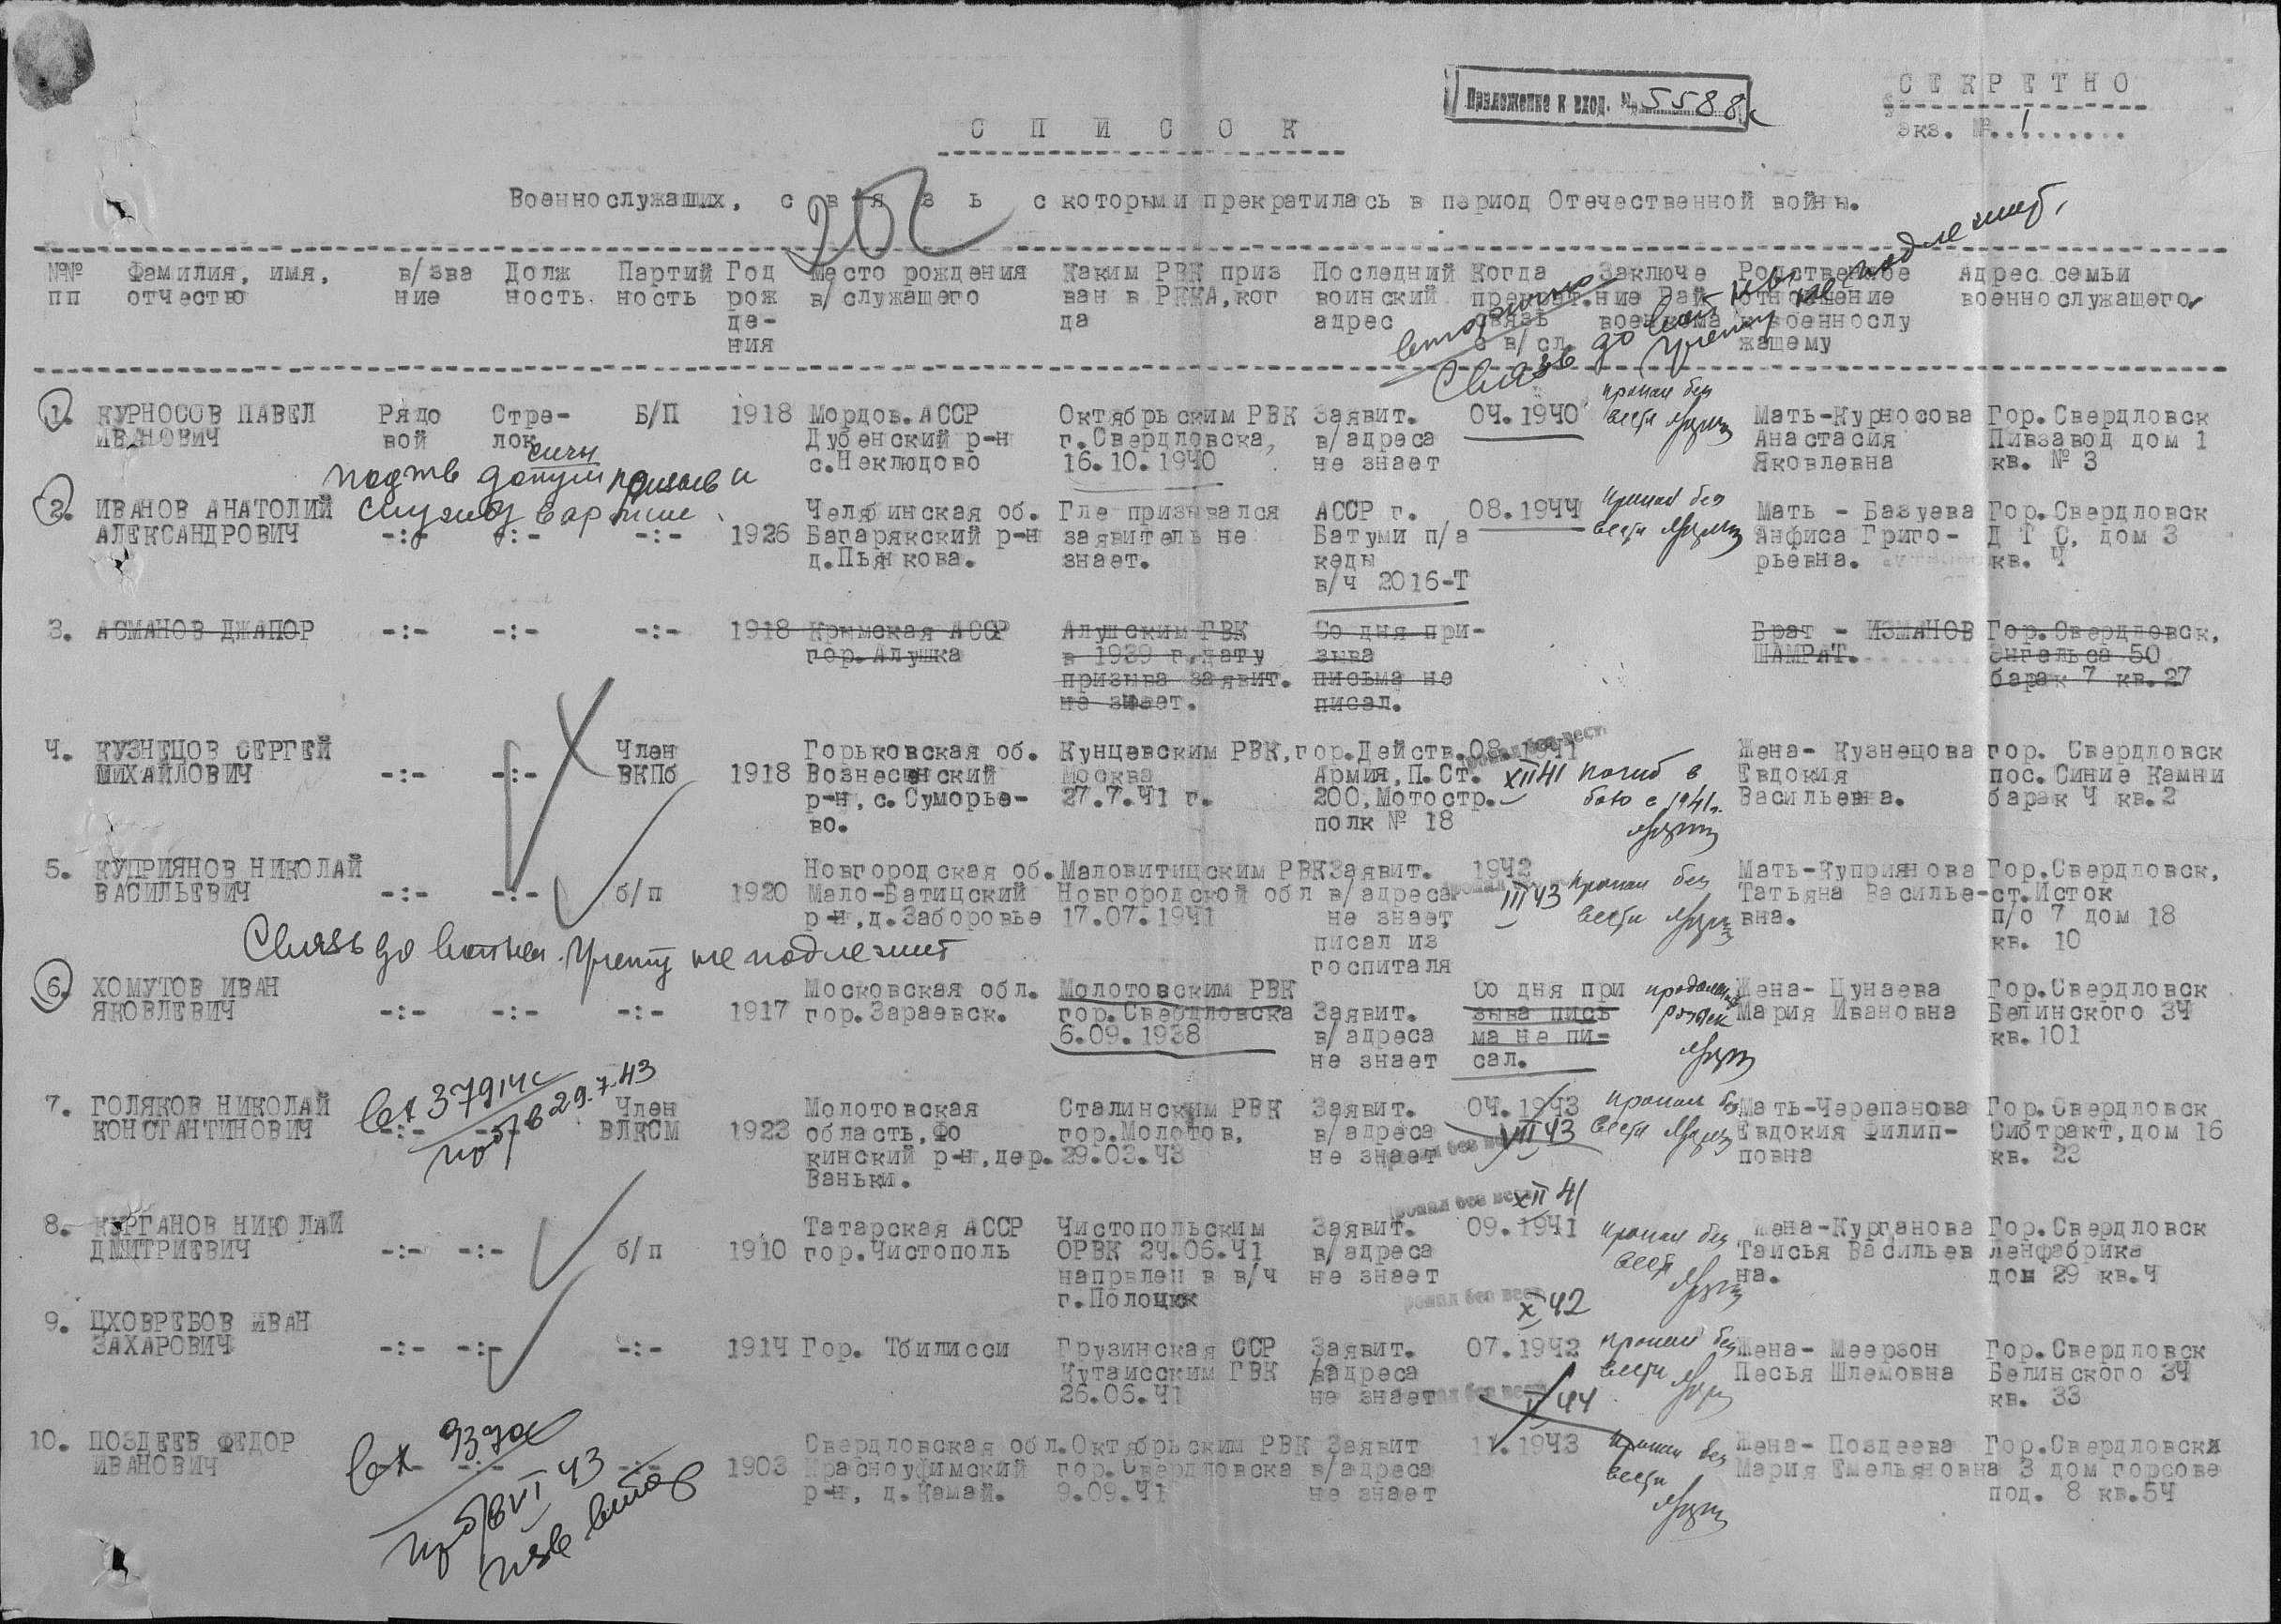 СЕКРЕТНО
Приложение к вход. № 5588с
экз. № 1
СПИСОК
Военнослужащих, связь с которыми прекратилась в период Отечественной войны.
№№ пп
Фамилия, имя, отчество
в/звание
Должность
Партийность
Год рождения
Место рождения в/служащего
Каким РВК призван в РККА, когда
Последний воинский адрес
Когда прекрат. связь с в/сл.
Заключение Рай военкома
Родственное отношение к военнослужащему
Адрес семьи военнослужащего
Связь до войны учету не подлежит.
1. КУРНОСОВ ПАВЕЛ Рядо Стре- Б/П 1918 Мордов.АССР Октябрьским РВК Заявит. 04.1940 пропал без Мать-Курносова Гор.Свердловск
ИВАНОВИЧ вой лок Дубенский р-н г.Свердловска, в/адреса вести Анастасия Пивзавод дом 1
с.Неклюдово 16.10.1940 не знает Яковлевна кв. № 3
2. ИВАНОВ АНАТОЛИЙ службу в армии Челябинская об. Где призывался АССР г. 08.1944 пропал без Мать - Базуева Гор.Свердловск
АЛЕКСАНДРОВИЧ -:- -:- -:- 1926 Багарякский р-н заявитель не Батуми п/я вести Анфиса Григо- Д Т С, дом 3
д.Пьянкова. знает. кеды рьевна. кв. 4
в/ч 2016-Т
3. АСМАНОВ ДЖАПОР -:- -:- -:- 1918 Крымская АССР Алушским ГВК Со дня при- Брат - ИЗМАНОВ Гор.Свердловск,
гор.Алушка в 1939 г.дату зыва ШАМРАТ. Энгельса 50
призыва заявит. письма не барак 7 кв.27
не знает. писал.
4. КУЗНЕЦОВ СЕРГЕЙ Член Горьковская об. Кунцевским РВК,гор.Действ.08.1941 Жена- Кузнецова гор. Свердловск
МИХАЙЛОВИЧ -:- -:- ВКПб 1918 Вознесенский Москва Армия,П.Ст. XII 41 погиб в Евдокия пос.Синие Камни
р-н,с.Суморье- 27.7.41 г. 200,Мотостр. бою с 1941г. Васильевна. барак 4 кв.2
во. полк № 18
5. КУПРИЯНОВ НИКОЛАЙ Новгородская об.Маловитицским РВКЗаявит. 1942 Мать-Куприянова Гор.Свердловск,
ВАСИЛЬЕВИЧ -:- -:- б/п 1920 Мало-Ватицский Новгородской обл в/адреса III 43 пропал без Татьяна Василье-ст.Исток
р-н,д.Заборовье 17.07.1941 не знает вести вна. п/о 7 дом 18
писал из кв. 10
Связь до войны. Учету не подлежит
госпиталя
6. ХОМУТОВ ИВАН Московская обл. Молотовским РВК Со дня при Жена- Цунаева Гор.Свердловск
ЯКОВЛЕВИЧ -:- -:- -:- 1917 гор.Зараевск. гор.Свердловска Заявит. зыва пись розыск Мария Ивановна Белинского 34
6.09.1938 в/адреса ма не пи- кв.101
не знает сал.
вх 37914с
7. ГОЛЯКОВ НИКОЛАЙ Член Молотовская Сталинским РВК Заявит. 04.1943 пропал без Мать-Черепанова Гор.Свердловск
КОНСТАНТИНОВИЧ -:- ВЛКСМ 1923 область,Фо гор.Молотов, в/адреса VII 43 вести Евдокия Филип- Сибтракт,дом 16
кинский р-н,дер. 29.03.43 не знает повна кв. 23
Ваньки.
пропал без вести XII 41
8. КУРГАНОВ НИКОЛАЙ Татарская АССР Чистопольским Заявит. 09.1941 пропал без Жена-Курганова Гор.Свердловск
ДМИТРИЕВИЧ -:- -:- б/п 1910 гор.Чистополь ОРВК 24.06.41 в/адреса вести Таисья Васильев ленфабрика
напрвлен в в/ч не знает на. дом 29 кв.4
г.Полоцк
X 42
9. ЦХОВРЕБОВ ИВАН
ЗАХАРОВИЧ -:- -:- -:- 1914 Гор. Тбилисси Грузинская ССР Заявит. 07.1942 пропал без Жена- Меерзон Гор.Свердловск
Кутаисским ГВК в/адреса вести Песья Шлемовна Белинского 34
26.06.41 не знает II 44 кв. 33
10. ПОЗДЕЕВ ФЕДОР Свердловская обл.Октябрьским РВК Заявит 11.1943 пропал без Жена- Поздеева Гор.Свердловск
ИВАНОВИЧ 1903 Красноуфимский гор.Свердловска в/адреса вести Мария Емельяновна 3 дом горсове
р-н, д.Камай. 9.09.41 не знает под. 8 кв.54